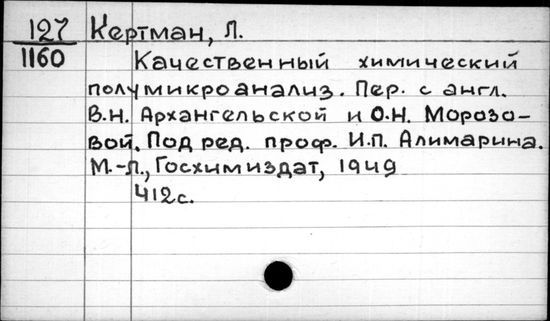 127 Кертман, Л.
1160 Качественный химический
полумикроанализ. Пер. с англ.
В.Н. Архангельской и О.Н. Морозо-
вой. Под ред. проф. И.П. Алимарина.
М.-Л., Госхимиздат, 1949
412с.